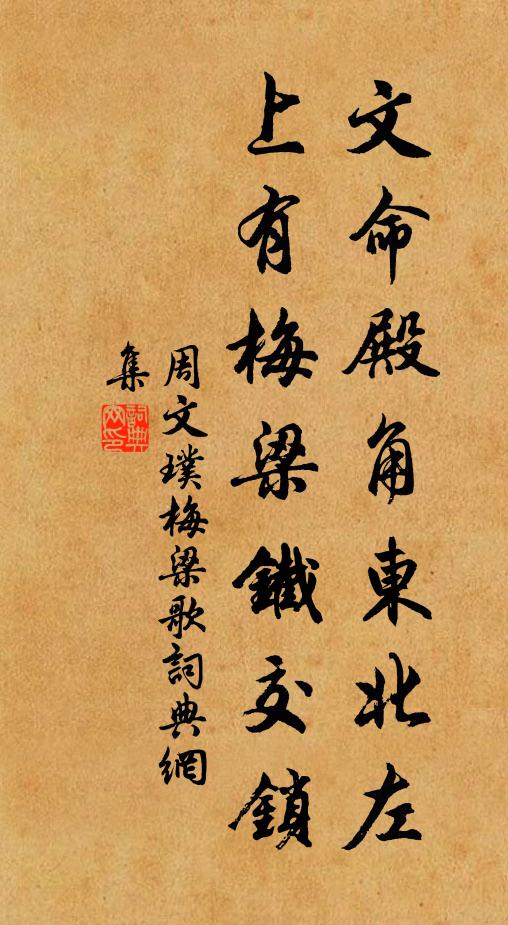 文命殿角東北左
上有梅梁鐵交鎖
周文璞梅梁歌詞典網
集
詞典
网印